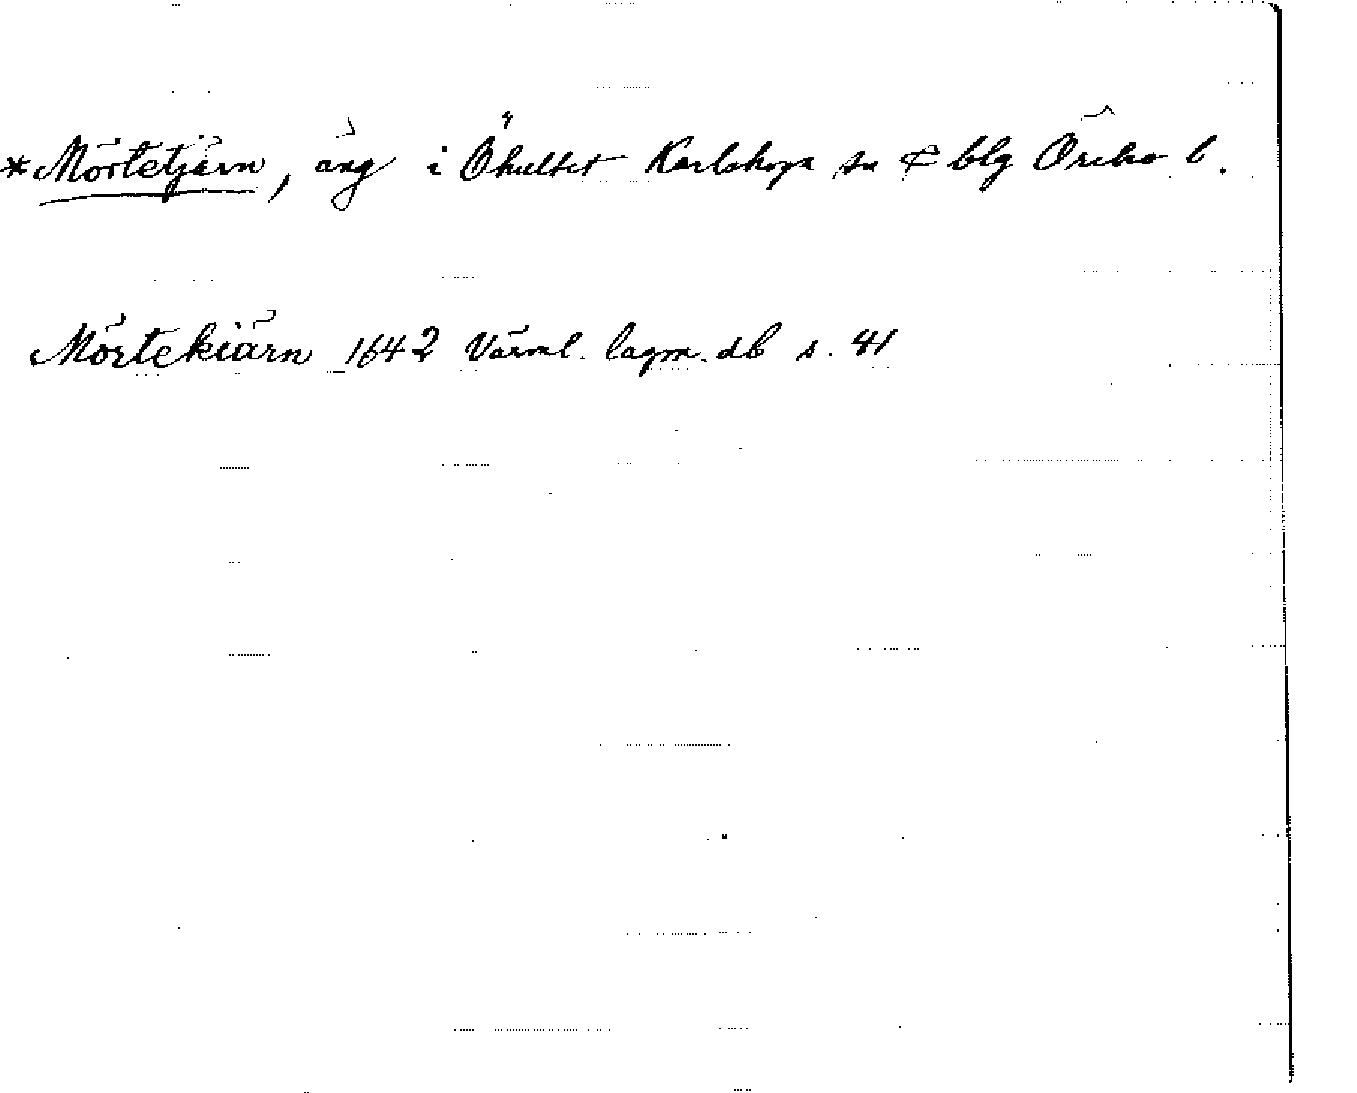 *Mörtetjärn, äng i Ökultet Karlskoga sn ¢ blg Örebro l.
Mörtekiärn 1642 Värml. lagm. db s. 41